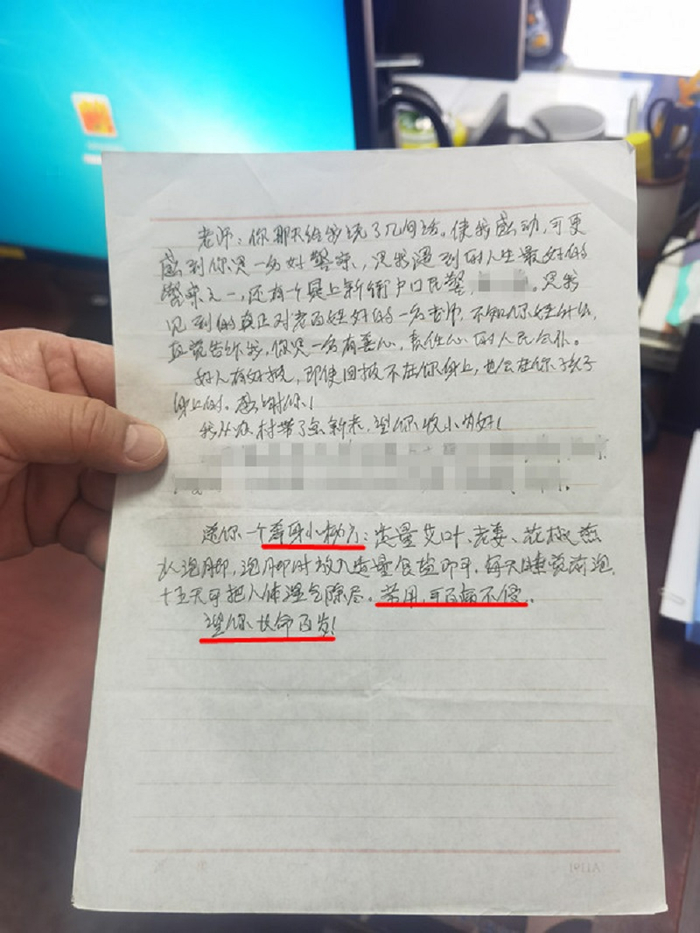 老师：你那天给我说了几句话。使我感动，可更
感到你是一名好警察，是我遇到的人生最好的
警察之一，还有一个是上新街户口民警，。是我
见到的真正对老百姓好的一名老师，不知你姓什么，
应说告诉我，你是一名有善心，责任心的人民公仆。
好人有好报，即使回报不在你身上，也会在你孩子
身上的。感谢你！
我从农村带了点新枣，望你收下为好！
送你一个养身小秘方：适量艾叶、老姜、花椒熬
水泡脚，泡脚时放入适量食盐即可，每天睡觉前泡，
十五天可把人体湿气除尽。常用，可百病不侵。
望你长命百岁！